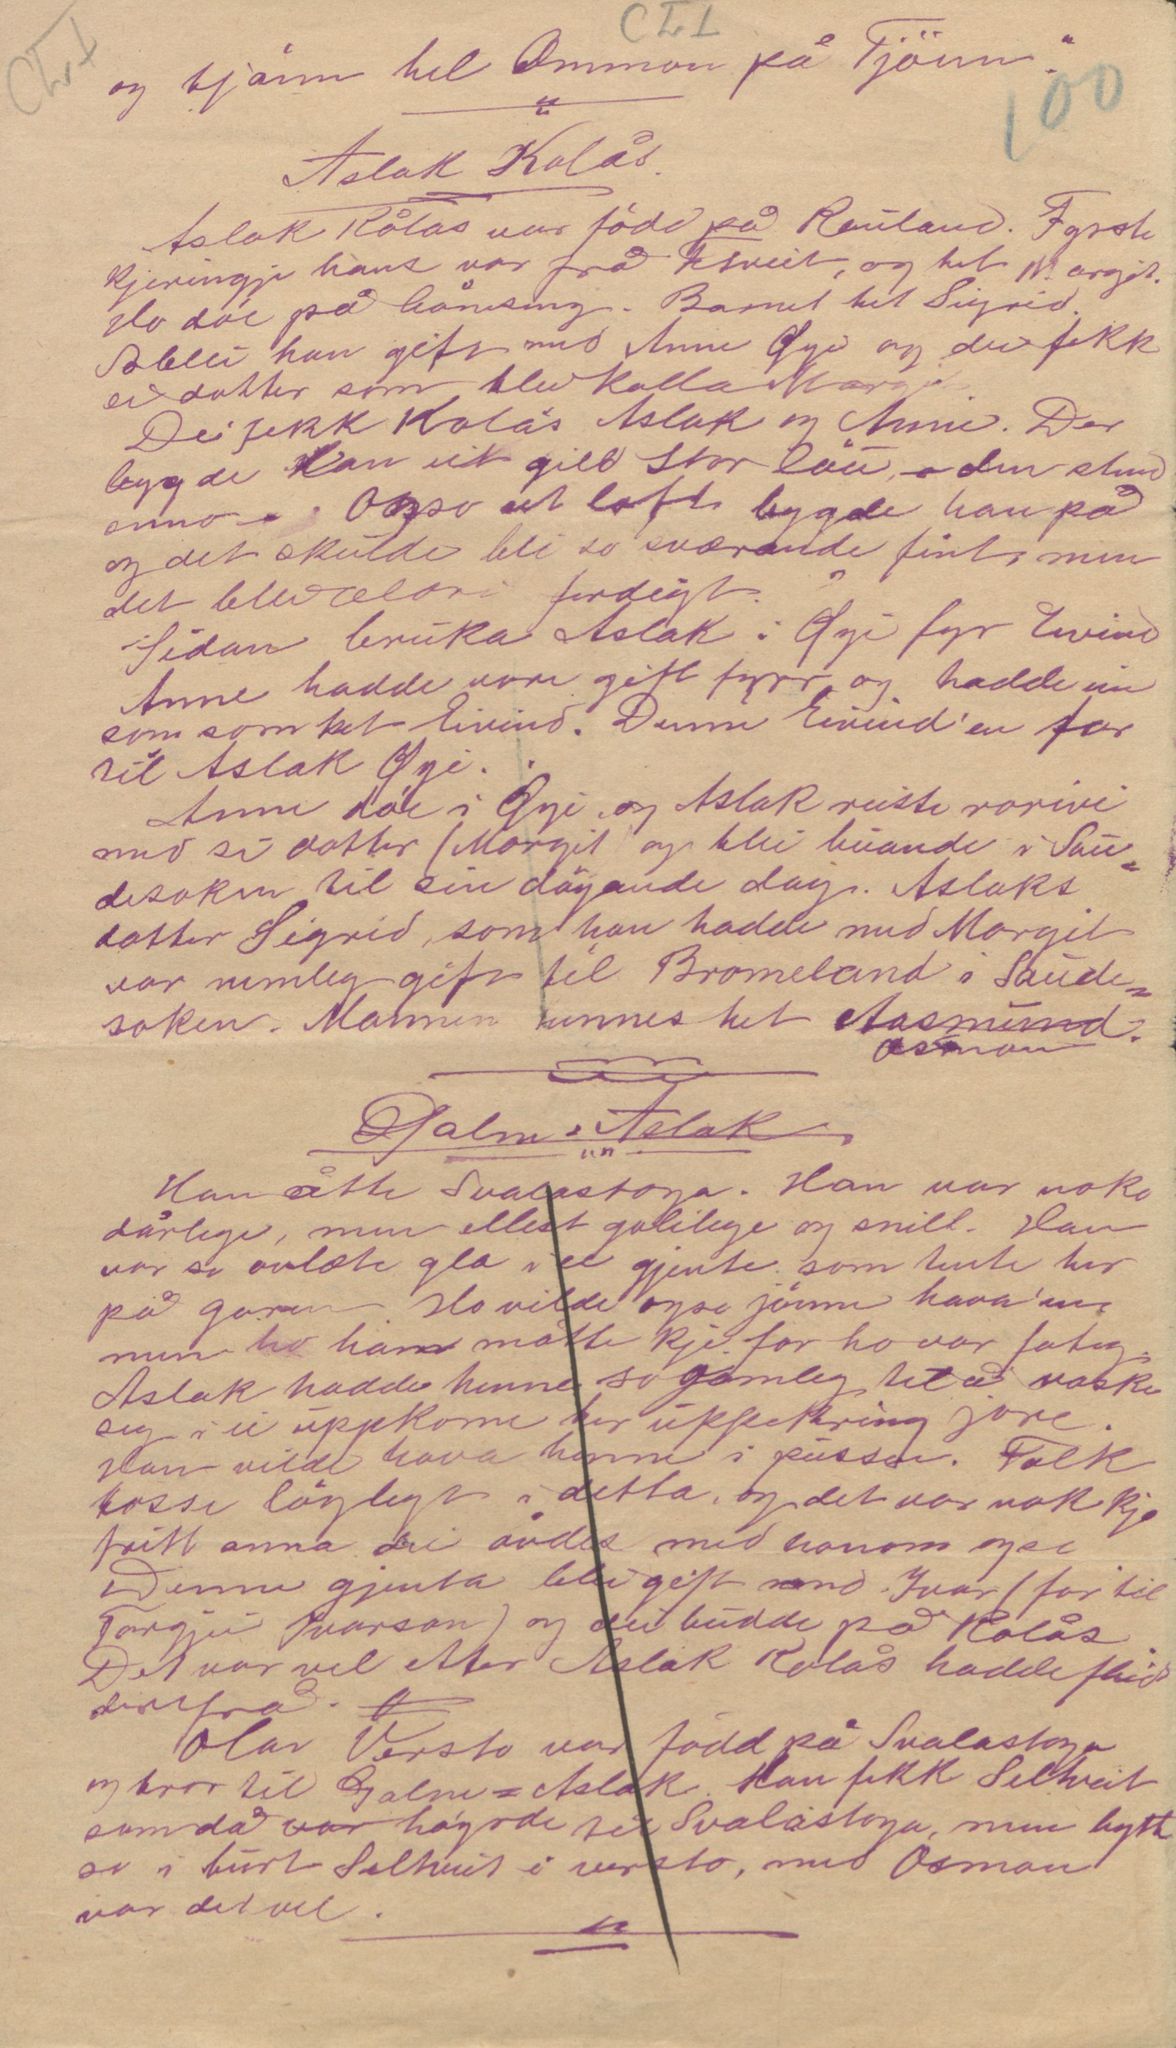 CLI
CLI
100
og hjåim hel Ommon på Tjönn."
Aslak Kolås.
Aslak Kålås var född på Rauland. Fyrste
kjeringji hans var frå Tveit, og het Margit.
Ho döe på bånsing. Barnet het Sigrid.
So blei han gift med Anne Öyi og dei fekk
ei dotter som blei kalla Margit
Dei fekk Kolås Aslak og Anne. Der
bygde han eit gildt stor löu, den stend
enno. Ogso eit loft bygde han på
og det skulde bli so sværande fint, men
det blei aldri ferdigt.
Sidan bruka Aslak i Öyi fyr Eivind
Anne hadde vore gift fyrr og hadde ein
son som het Eivind. Denne Eivind'en far
til Aslak Öyi.
Anne döe i Öyi og Aslak reiste
med si dotter (Margit og blei buande i Sau=
desoken til sin döyande dag. Aslaks
dotter Sigrid, som han hadde med Margit
var nemleg gift til Bromeland i Saude=
soken. Mannen hennes het Aasmund.
Osmon
Galne-Aslak
Han åtte Svalastoga. Han var noko
dårlege, men ellest godlege og snill. Han
var so ovlæte gla i ei gjente som tente her
på garen Ho vilde ogso jönne hava'en
men ho han måtte kje for ho var fatig.
Aslak hadde henne so gamleg tel å vaske
seg i ei uppkome her uppekring jore.
Han vilde hava henne i pussen. Folk
tosse löglegt i detta, og det var nok kje
fritt anna dei med honom ogso
Denne gjenta blei gift med Ivar (far til
Torgjei Ivarson) og dei budde på Kolås
Det var vel etter Aslak Kolås hadde flutt
derifrå.
Olav Versto var född på Svalastoga
og bror til Galne=Aslak. Han fekk Seltveit
som då var högrde til Svalastoga, men bytte
so i burt Seltveit i versto, med Osmon
var det vel.